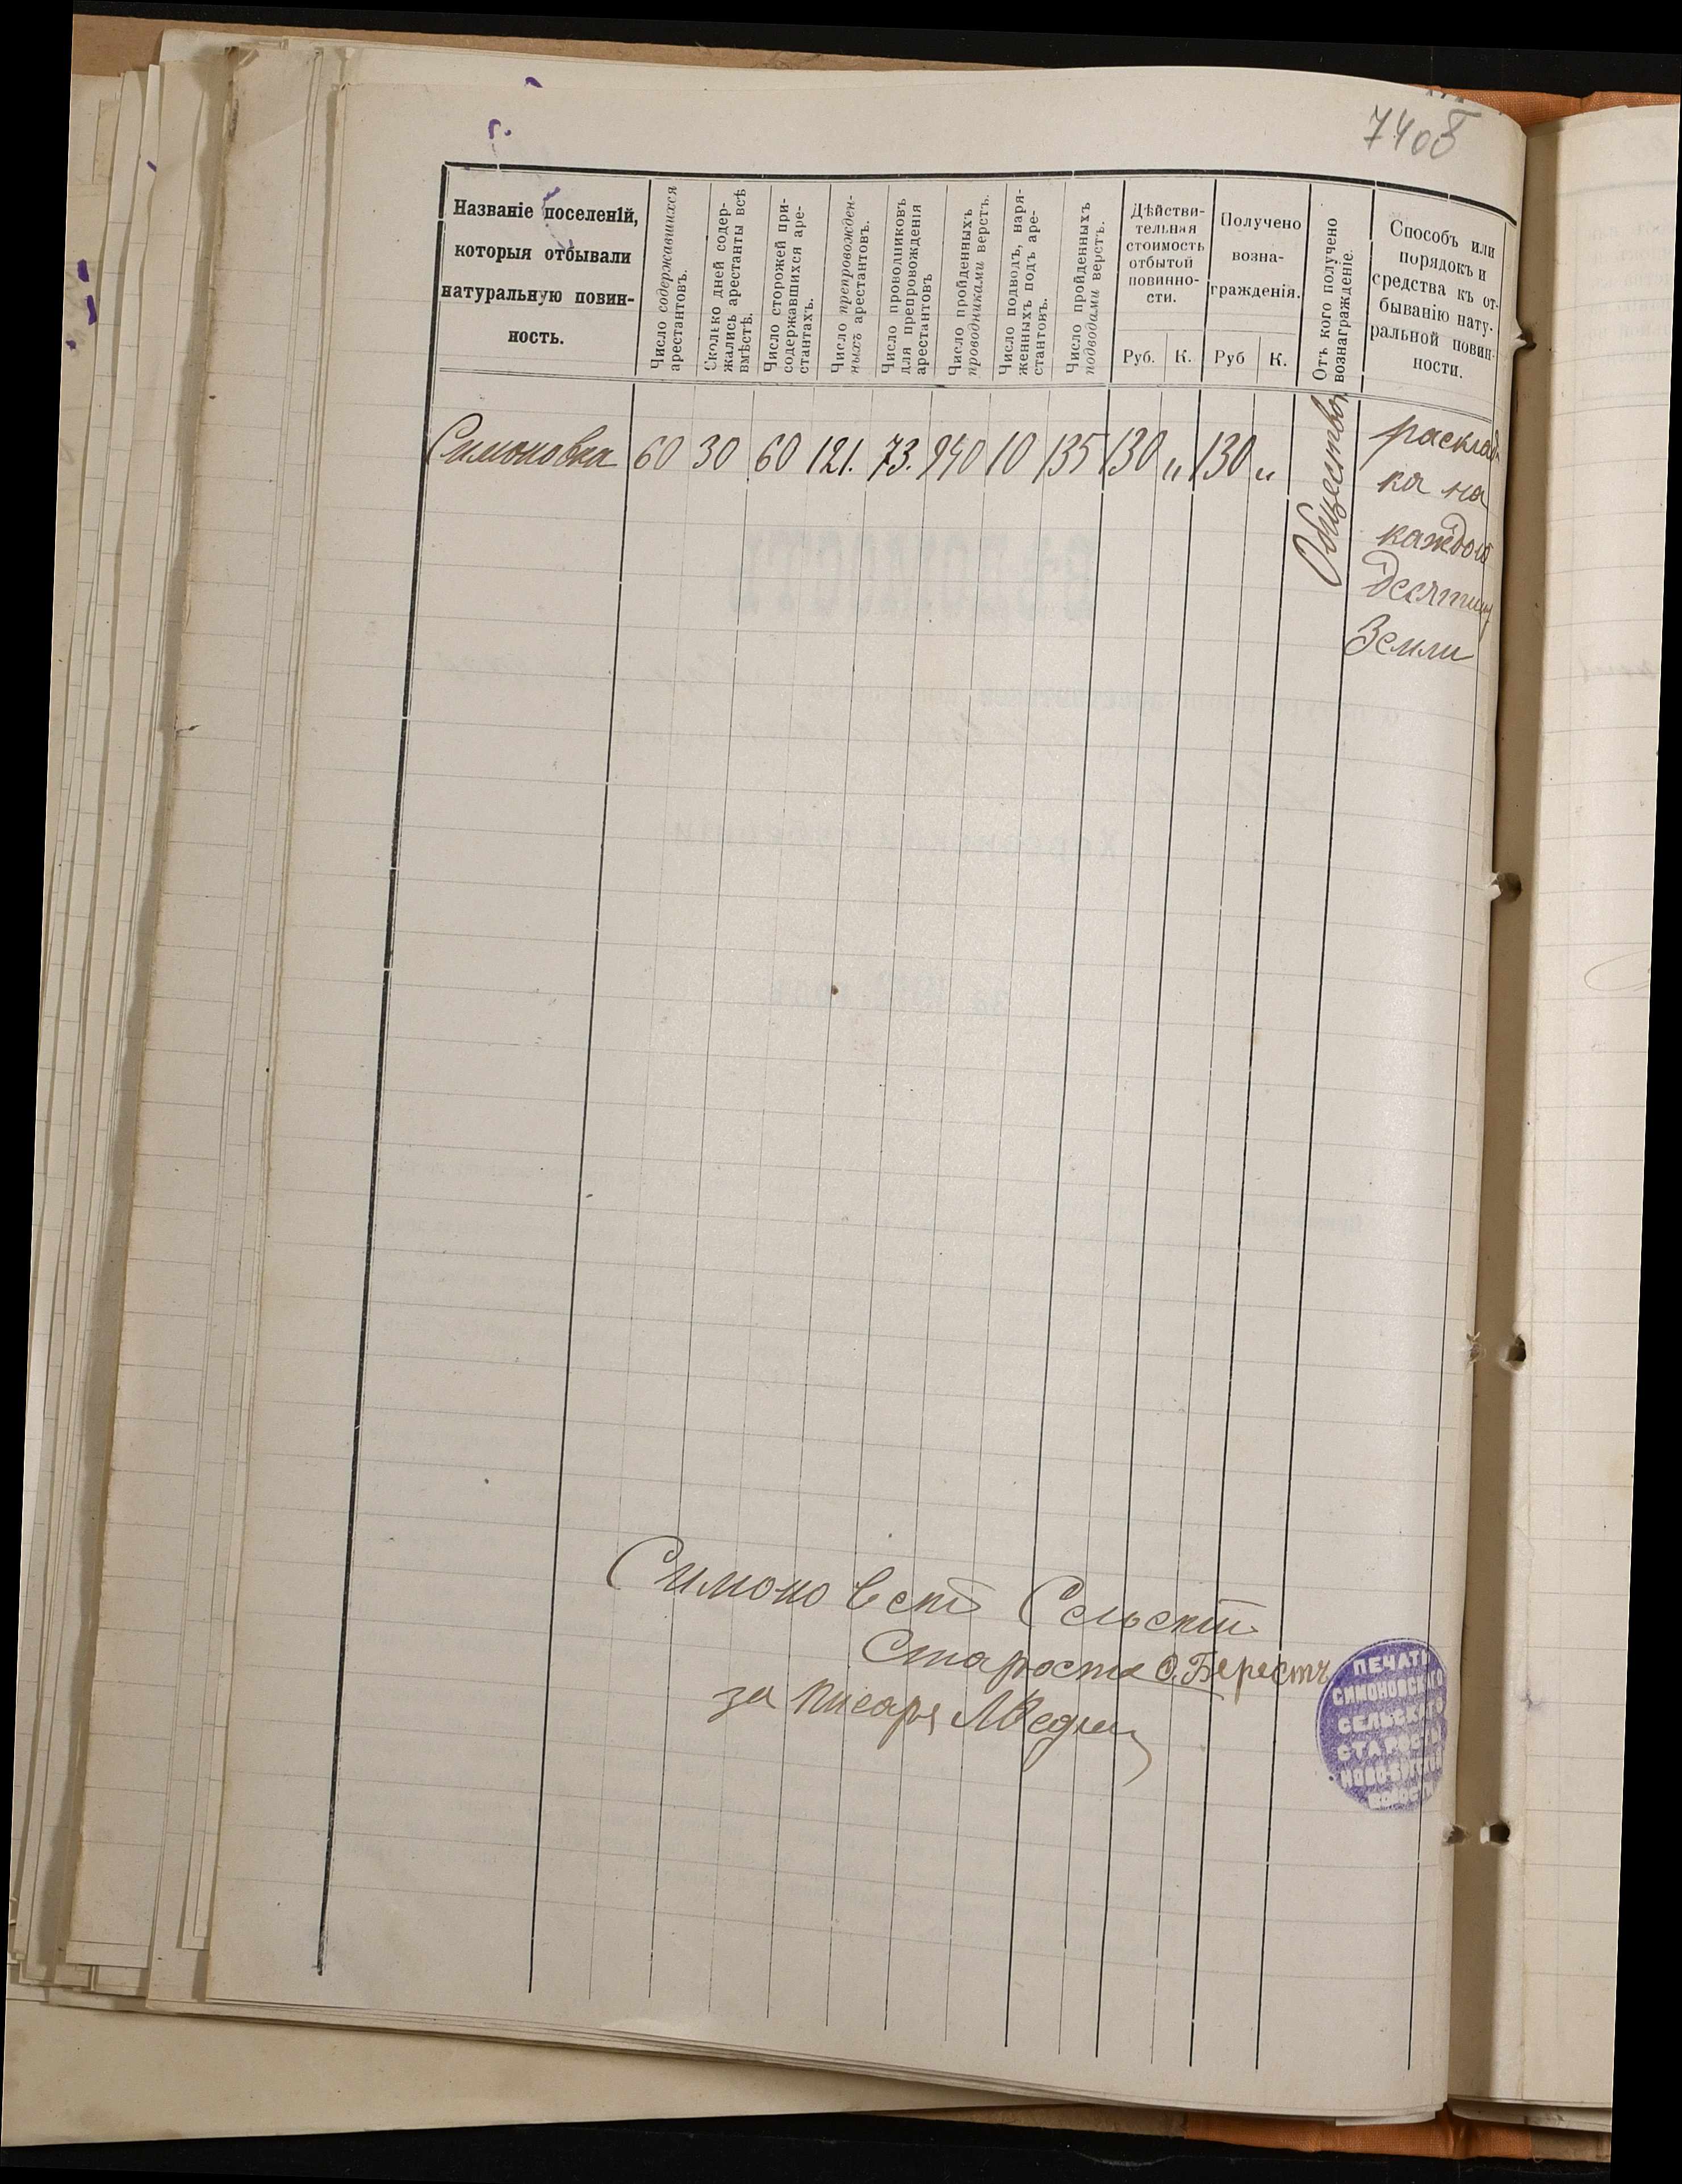 740б
Названіе поселеній,
которыя отбывали
натуральную повин-
ность.
Число содержавшихся
арестантовъ.
Сколько дней содер-
жались арестанты всѣ
вмѣстѣ.
Число сторожей при-
содержавшихся аре-
стантахъ.
Число препровожден-
ныхъ арестантовъ.
Число проводниковъ
для препровожденія
арестантовъ
Число пройденныхъ
проводниками верстъ.
Число подводъ, наря-
женныхъ подъ аре-
стантовъ.
Число пройденныхъ
подводами верстъ.
Дѣйстви-
тельная
стоимость
отбытой
повинно-
сти.
Руб. К.
Получено
возна-
гражденія.
Руб К.
Отъ кого получено
вознагражденіе.
Способъ или
порядокъ и
средства къ от-
быванію нату-
ральной повин-
ности.
Симоновка 60 30 60 121. 73. 940 10 135 130 „ 130 „
Общество
расклад
ка на
каждую
десятину
Земли
Симоновскій Сельскій
Староста О. Берестъ
за писаря
ПЕЧАТЬ
СИМОНОВСКАГО
СЕЛЬСКАГО
СТАРОСТЫ